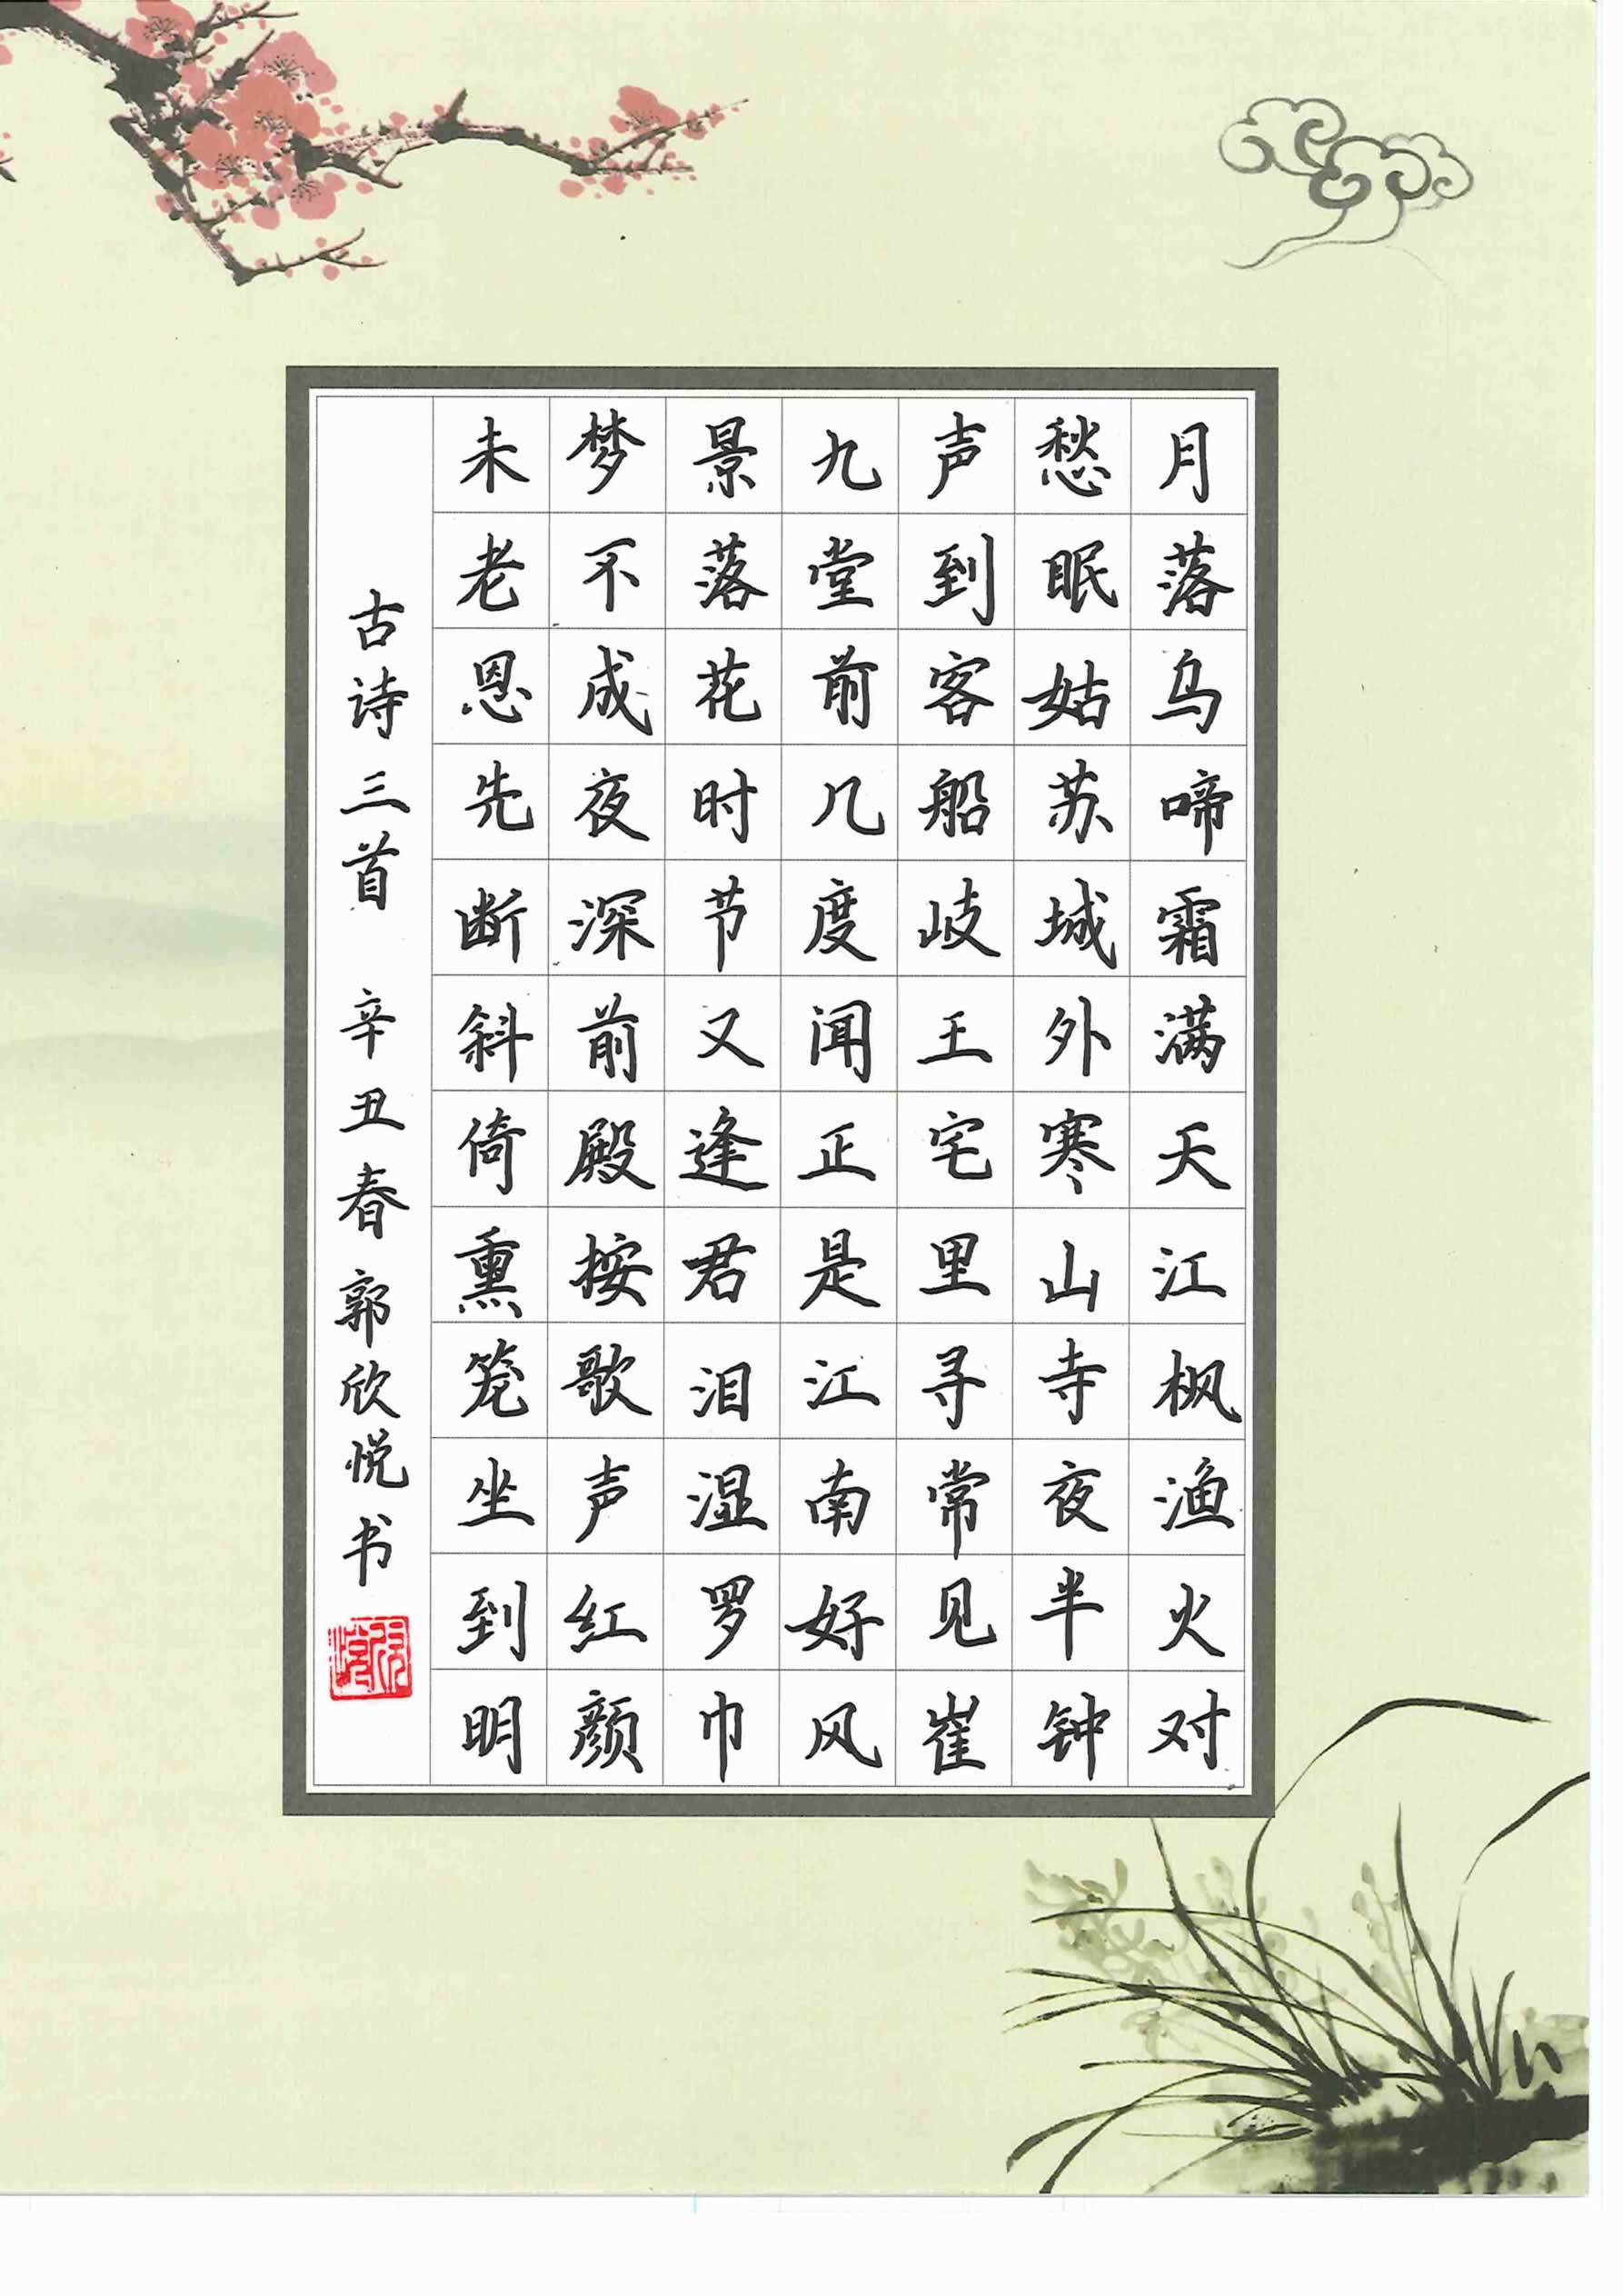 月落乌啼霜满天江枫渔火对
愁眠姑苏城外寒山寺夜半钟
声到客船岐王宅里寻常见崔
九堂前几度闻正是江南好风
景落花时节又逢君泪湿罗巾
梦不成夜深前殿按歌声红颜
未老恩先断斜倚熏笼坐到明
古诗三首 辛丑春郭欣悦书